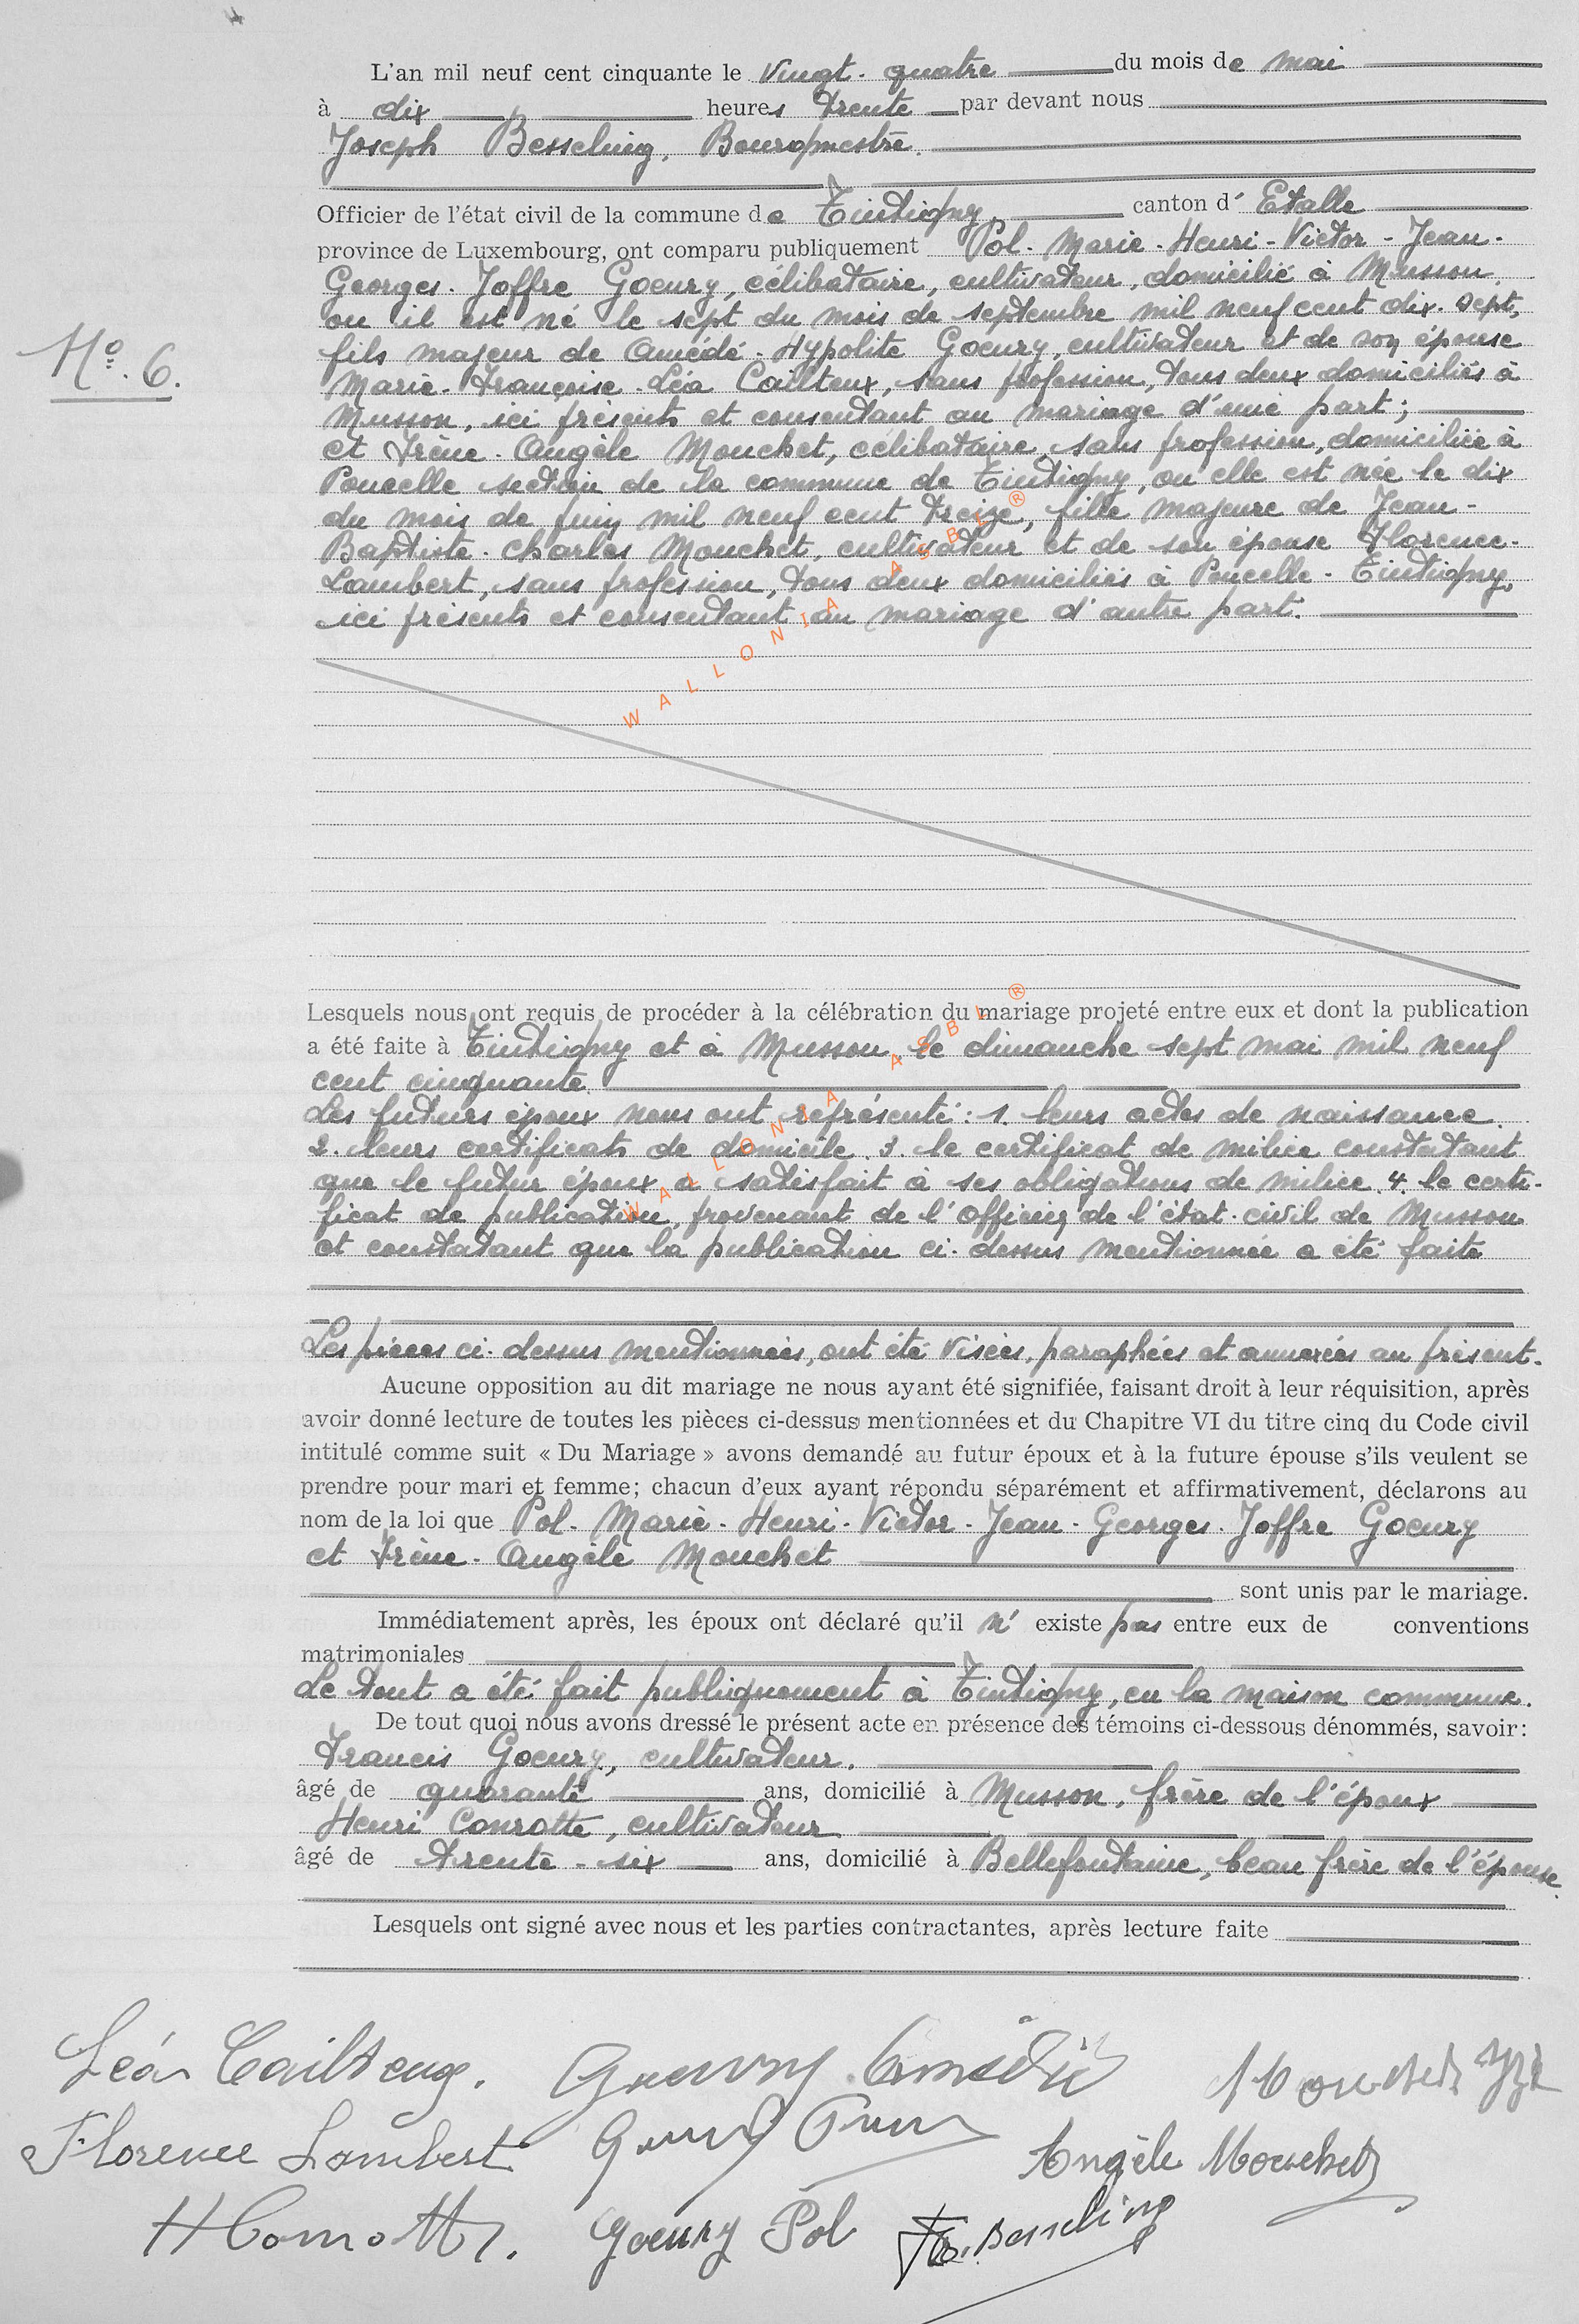 L'an mil neuf cent cinquante le vingt-quatre du mois de mai
à dix heures trente par devant nous
Joseph Besseling, Bourgmestre.
Officier de l'état civil de la commune de Tintigny, canton d'Etalle
province de Luxembourg, ont comparu publiquement Pol-Marie-Henri-Victor-Jean-
Georges-Joffre Goeury, célibataire, cultivateur, domicilié à Musson
ou il est né le sept du mois de septembre mil neuf cent dix-sept,
N° 6.
fils majeur de Amédé-Hypolite Goeury, cultivateur et de son épouse
Marie-Françoise-Léa Cailteux, sans profession, tous deux domiciliés à
Musson, ici présents et consentant au mariage d'une part;
et Irène-Angèle Mouchet, célibataire, sans profession, domiciliée à
Poncelle section de la commune de Tintigny, ou elle est née le dix
du mois de juin mil neuf cent treize, fille majeure de Jean-
Baptiste-Charles Mouchet, cultivateur et de son épouse Florence
Lambert, sans profession, tous deux domiciliés à Poncelle-Tintigny,
ici présents et consentant au mariage d'autre part.
WALLONIA ASBL ®
Lesquels nous ont requis de procéder à la célébration du mariage projeté entre eux et dont la publication
a été faite à Tintigny et à Musson, le dimanche sept mai mil neuf
cent cinquante
Les futurs époux nous ont représenté: 1. leurs actes de naissance.
2. leurs certificats de domicile. 3. le certificat de milice constatant
que le futur époux a satisfait à ses obligations de milice. 4. le certi-
ficat de publication, provenant de l'officier de l'état-civil de Musson
et constatant que la publication ci-dessus mentionnée a été faite
WALLONIA ASBL ®
Les pièces ci-dessus mentionnées, ont été visées, paraphées et annexées au présent.
Aucune opposition au dit mariage ne nous ayant été signifiée, faisant droit à leur réquisition, après
avoir donné lecture de toutes les pièces ci-dessus mentionnées et du Chapitre VI du titre cinq du Code civil
intitulé comme suit « Du Mariage » avons demandé au futur époux et à la future épouse s'ils veulent se
prendre pour mari et femme; chacun d'eux ayant répondu séparément et affirmativement, déclarons au
nom de la loi que Pol-Marie-Henri-Victor-Jean-Georges-Joffre Goeury
et Irène-Angèle Mouchet
sont unis par le mariage.
Immédiatement après, les époux ont déclaré qu'il n'existe pas entre eux de conventions
matrimoniales
Le tout a été fait publiquement à Tintigny, en la maison commune.
De tout quoi nous avons dressé le présent acte en présence des témoins ci-dessous dénommés, savoir:
Francis Goeury, cultivateur.
âgé de quarante ans, domicilié à Musson, frère de l'époux
Henri Conrotte, cultivateur
âgé de trente-six ans, domicilié à Bellefontaine, beau frère de l'épouse.
Lesquels ont signé avec nous et les parties contractantes, après lecture faite
Léa Cailteux. Goeury Amédée Mouchet
Florence Lambert Goeury Angèle Mouchet
H Conrotte. Goeury Pol Jos. Besseling